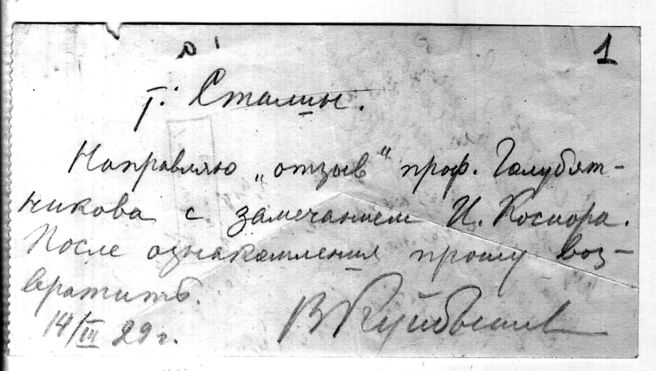 1
т. Сталин.
Направляю „отзыв" проф. Голубят-
никова с замечанием И. Косиора.
После ознакомления прошу воз-
вратить.
14/III 29 г.
В Куйбышев